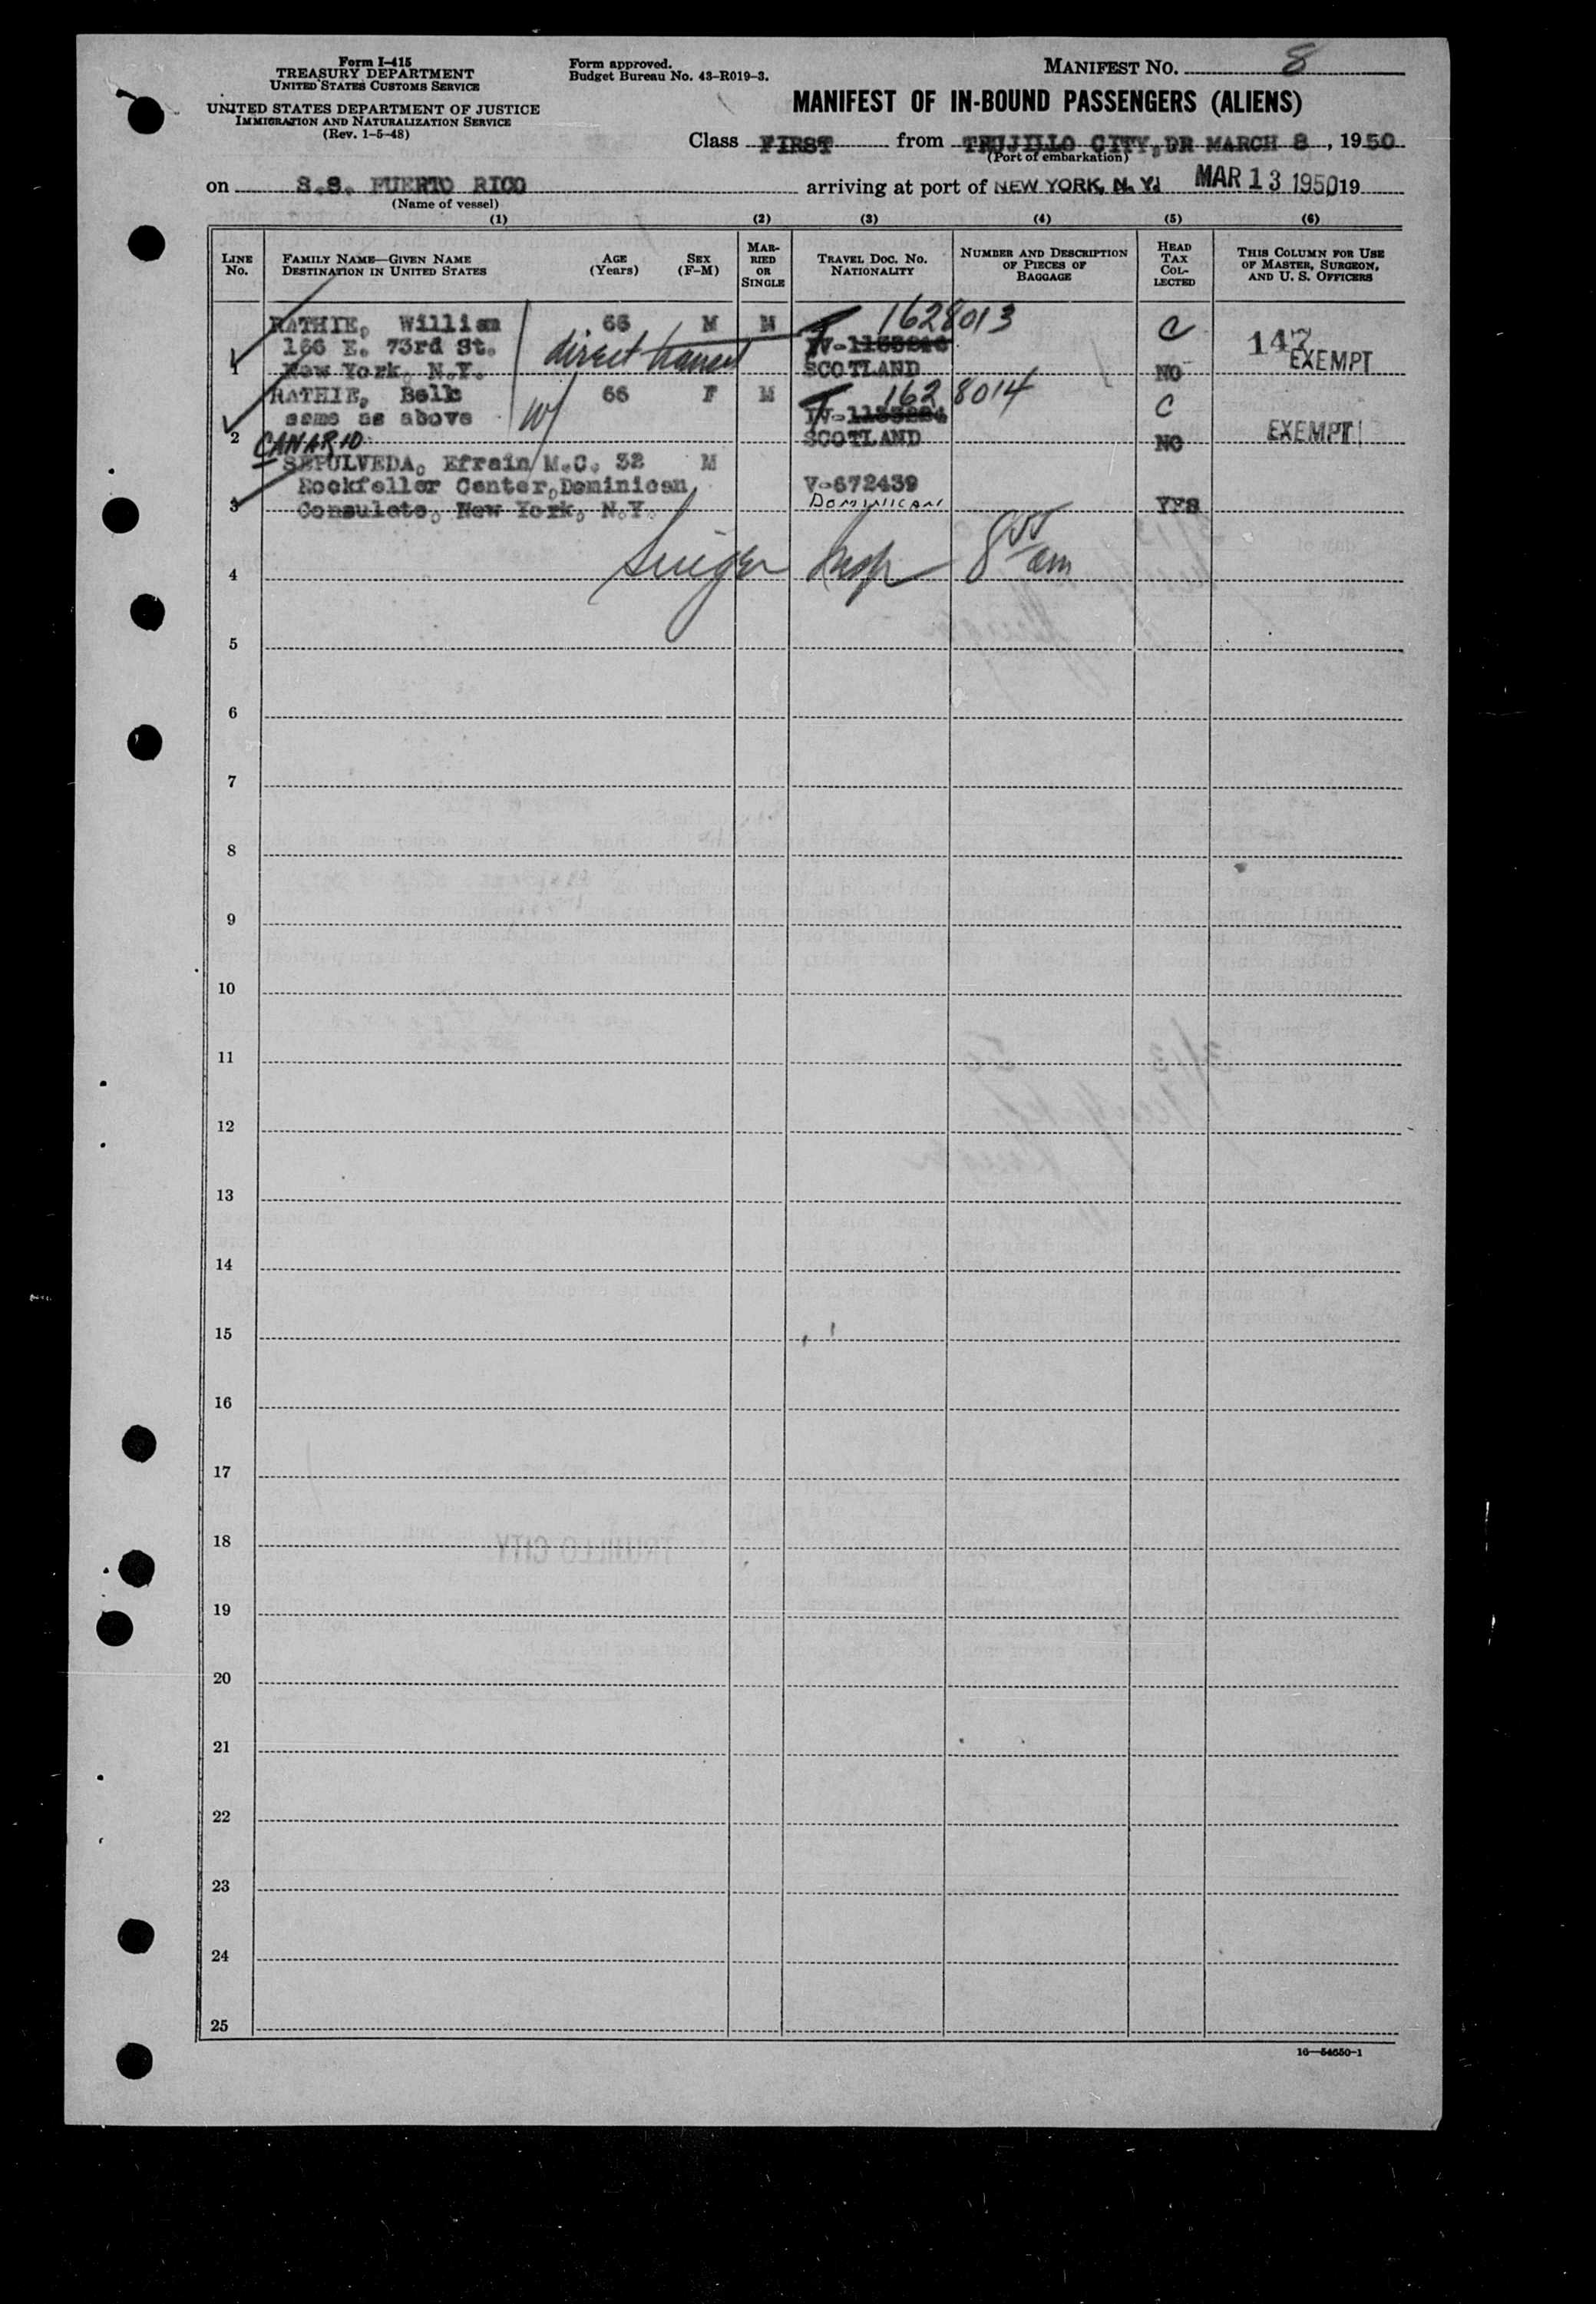 Form I-415
TREASURY DEPARTMENT
UNITED STATES CUSTOMS SERVICE
UNITED STATES DEPARTMENT OF JUSTICE
IMMIGRATION AND NATURALIZATION SERVICE
(Rev. 1-5-48)
Form approved.
Budget Bureau No. 43-R019-3.
MANIFEST NO. 8
MANIFEST OF IN-BOUND PASSENGERS (ALIENS)
Class FIRST from TRUJILLO CITY, DR MARCH 8, 1950
(Port of embarkation)
on S.S. PUERTO RICO arriving at port of NEW YORK, N. Y. MAR 13 1950 19
(Name of vessel)
(1) (2) (3) (4) (5) (6)
LINE No. FAMILY NAME—GIVEN NAME DESTINATION IN UNITED STATES AGE (Years) SEX (F-M) MARRIED OR SINGLE TRAVEL DOC. NO. NATIONALITY NUMBER AND DESCRIPTION OF PIECES OF BAGGAGE HEAD TAX COLLECTED THIS COLUMN FOR USE OF MASTER, SURGEON, AND U. S. OFFICERS
RATHIE, William 66 M M 1628013 C 147
166 E. 73rd St. direct transit EXEMPT
1 New York, N.Y. SCOTLAND NO
RATHIE, Belle 66 F M 1628014 C
same as above W/ EXEMPT
2 SCOTLAND NO
CANARIO
SEPULVEDA, Efrain M.C. 32 M
Rockfeller Center, Dominican V-672439
3 Consulate, New York, N.Y. DOMINICAN YES
4 Insp 8 55 am
5
6
7
8
9
10
11
12
13
14
15
16
17
18
19
20
21
22
23
24
25
16—54650-1